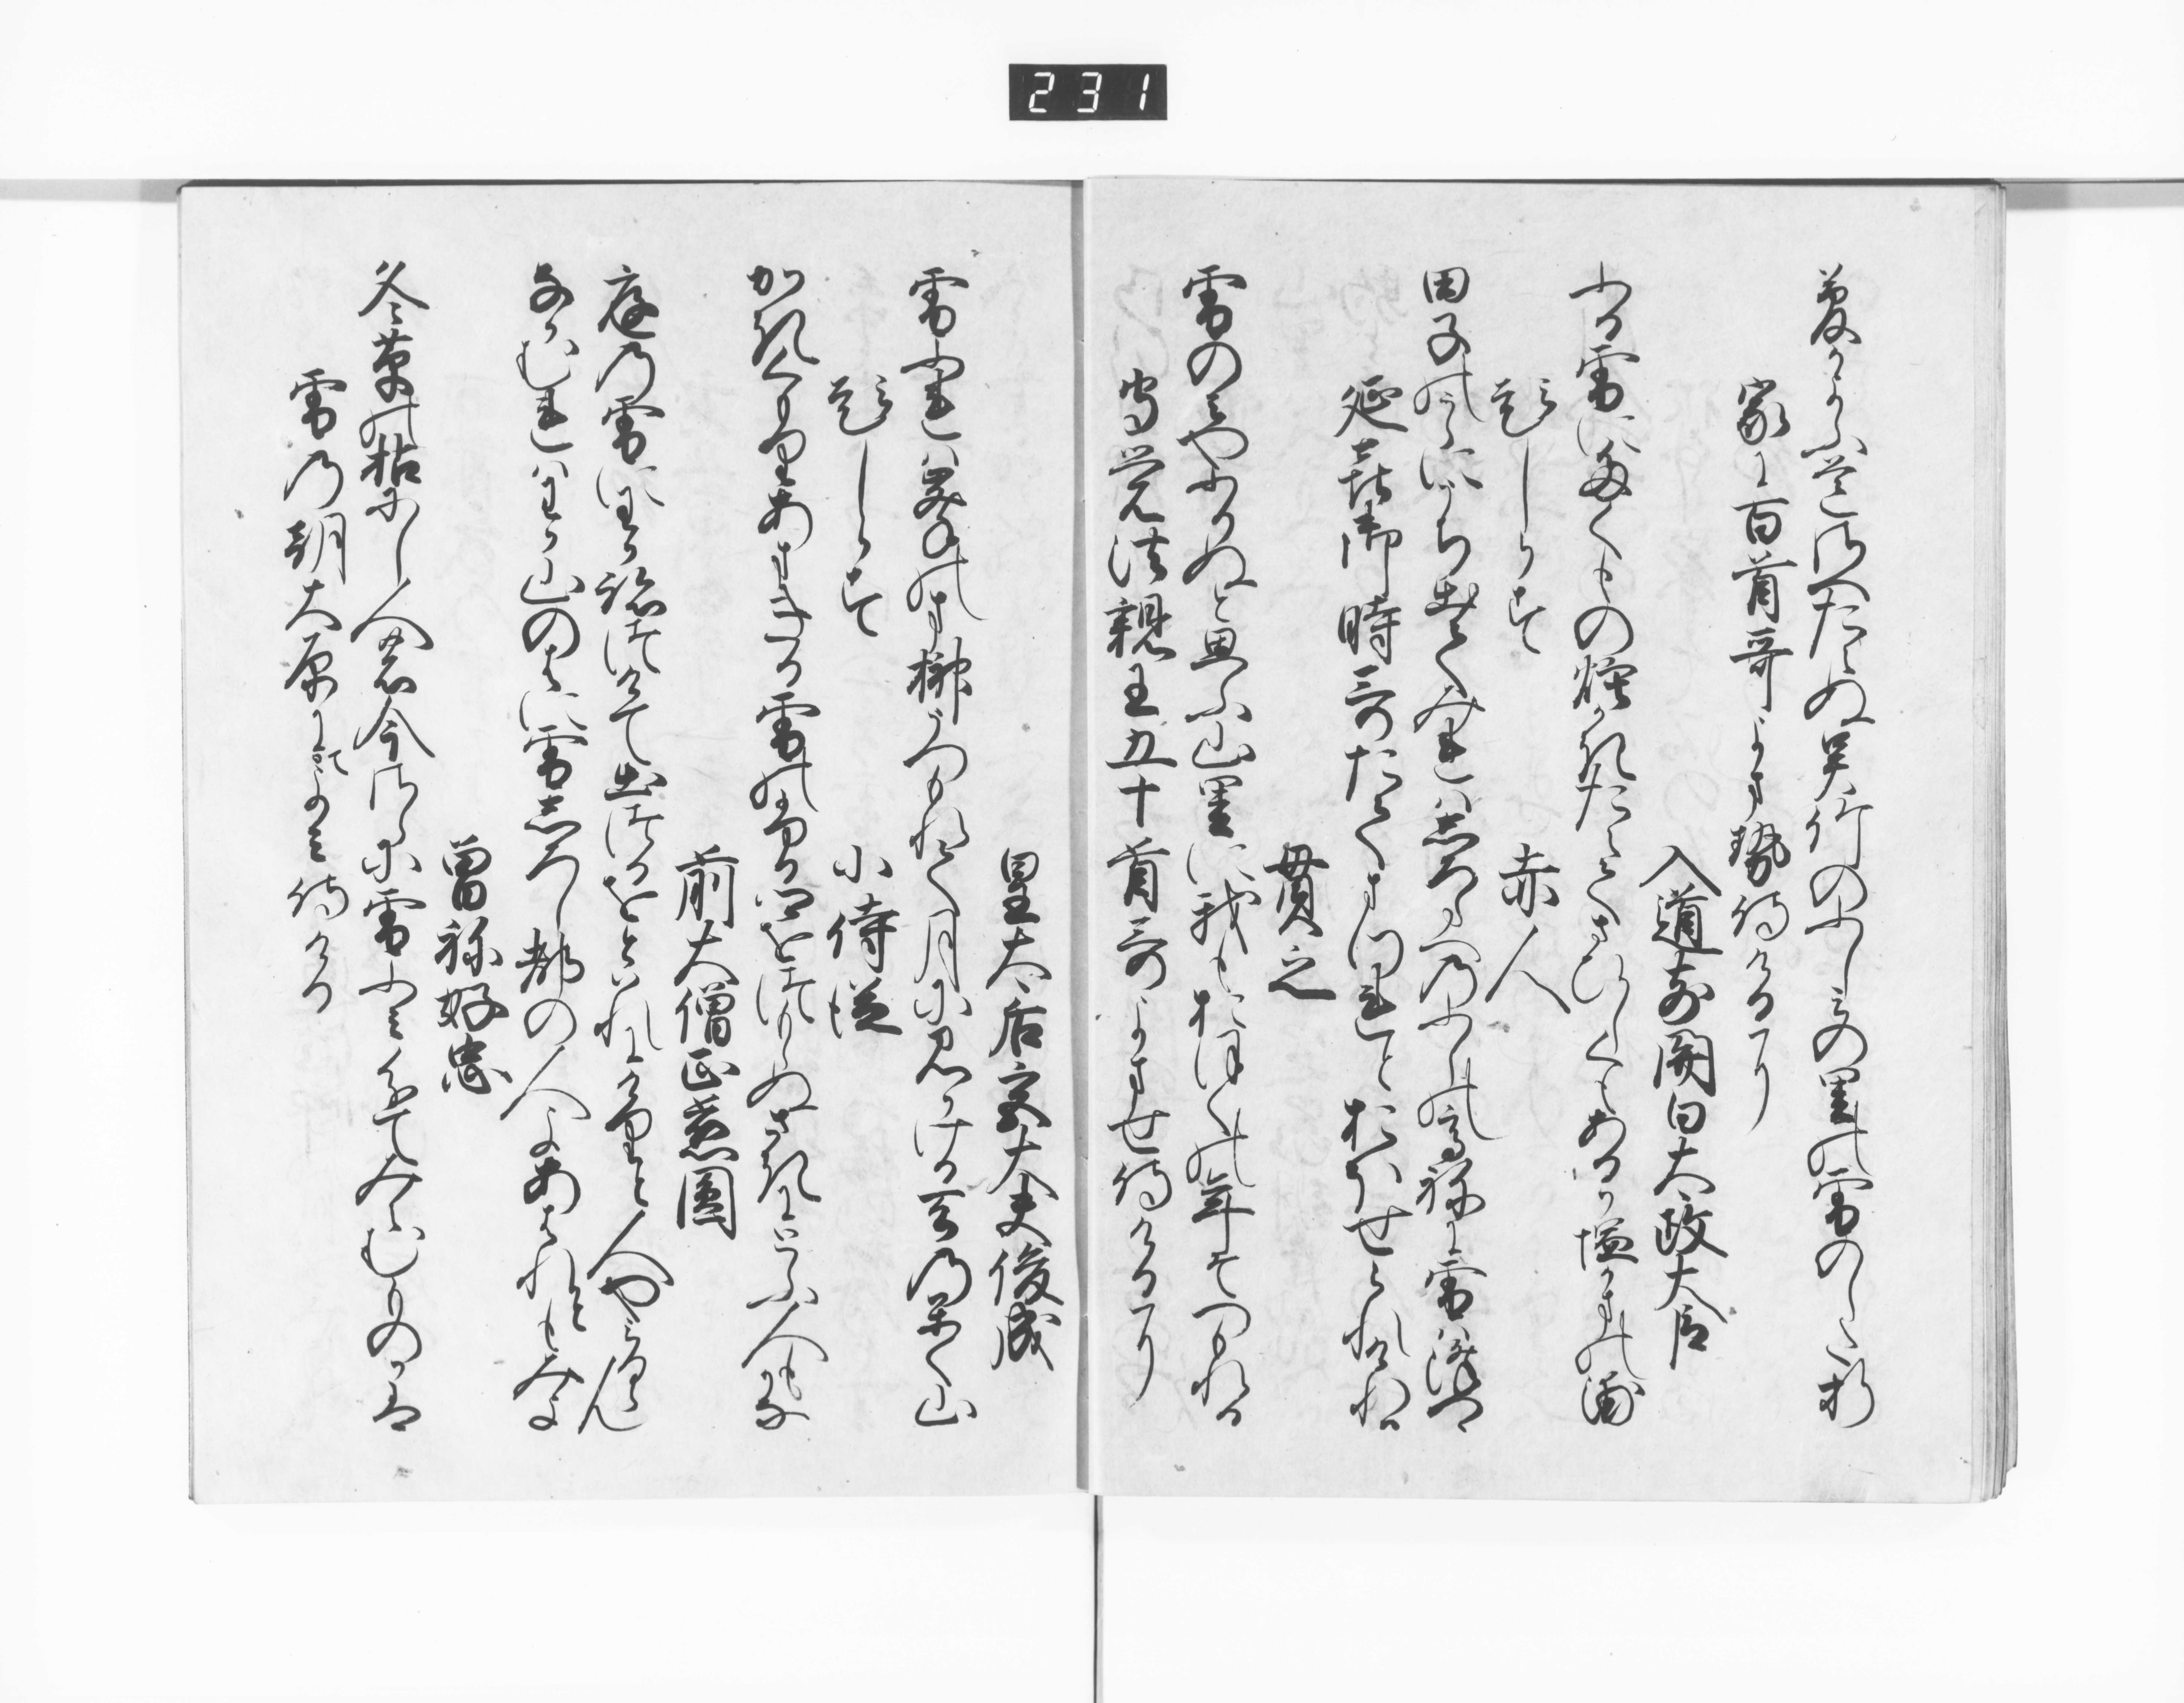 231
夢かよふ道さへたえぬ呉竹のふしみの里の雪のした折
家に百首哥よませ侍けるに
入道前関白太政大臣
ふる雪にたくもの煙かきたえてさひしくもあるか塩かまの浦
題しらす　赤人
田子の浦にうち出てみれは白たへのふしの高祢に雪は降つゝ
延喜御時哥たてまつれとおほせられけれは
貫之
雪のみやふりぬと思ふ山里に我もおほくの年そつもれる
守覚法親王五十首哥よませ侍けるに
皇太后宮大夫俊成
雪ふれは峯のま榊うつもれて月にみかける天の香く山
題しらす　小侍従
かきくもりあまきる雪の故郷をつもらぬさきにとふ人もかな
前大僧正慈圓
庭の雪にわか跡つけて出つるをとはれにけりと人やみるらん
なかむれはわか山のはに雪しろし都の人よあはれともみよ
曽祢好忠
冬草の枯にし人の今さらに雪ふみ分てみえむものかは
雪の朝大原にてよみ侍ける